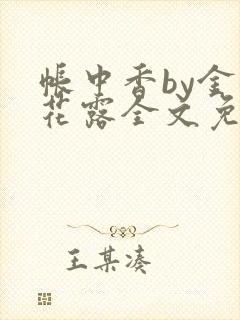 帐中香by金
花露全文免
王某凑